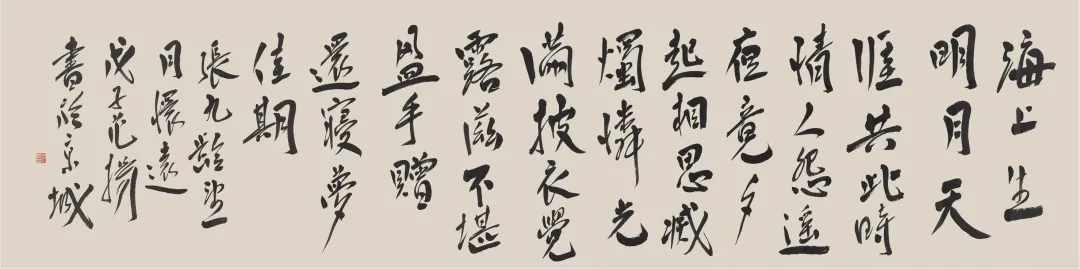 海上生
明月天
涯共此時
情人怨遙
夜竟夕
起相思滅
燭憐光
滿披衣覺
露滋不堪
盈手贈
還寢夢
佳期
張九齡望
月懷遠
戊子范揚
書於京城